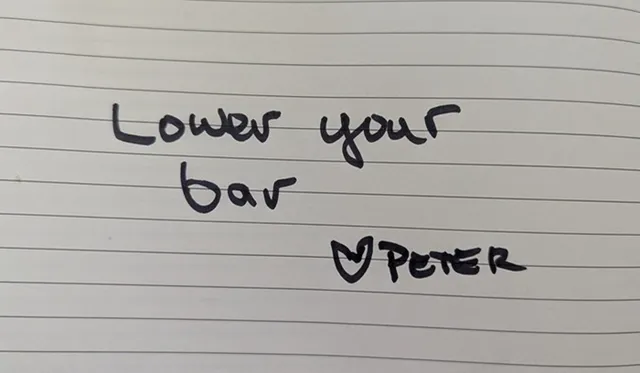 Lower your
bar
♡PETER